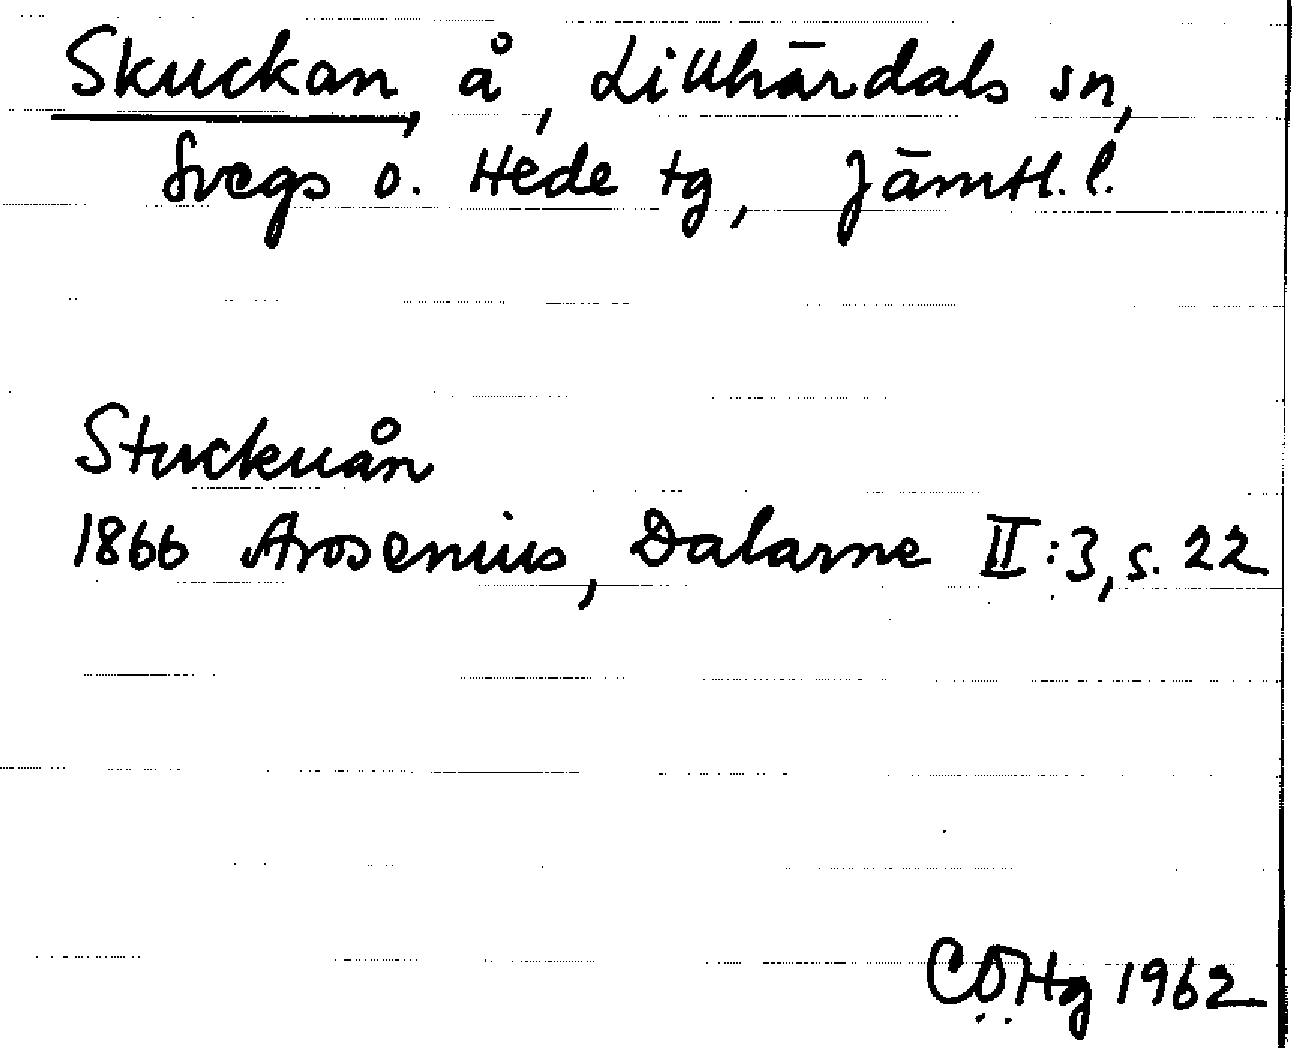 Skuckan, å, Lillhärdals sn,
Svegs o. Hede tg, Jämtl. l.
Stuckuån
1866 Arosenius, Dalarne II:3, s. 22
1962